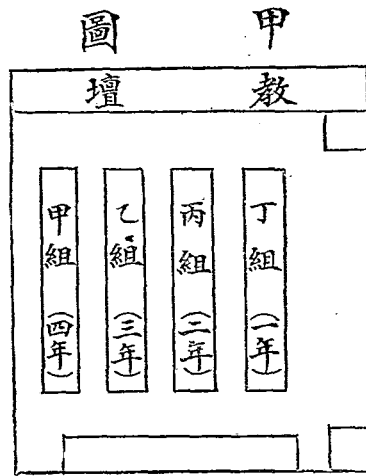 甲圖
教壇
丁組（一年）
丙組（二年）
乙組（三年）
甲組（四年）